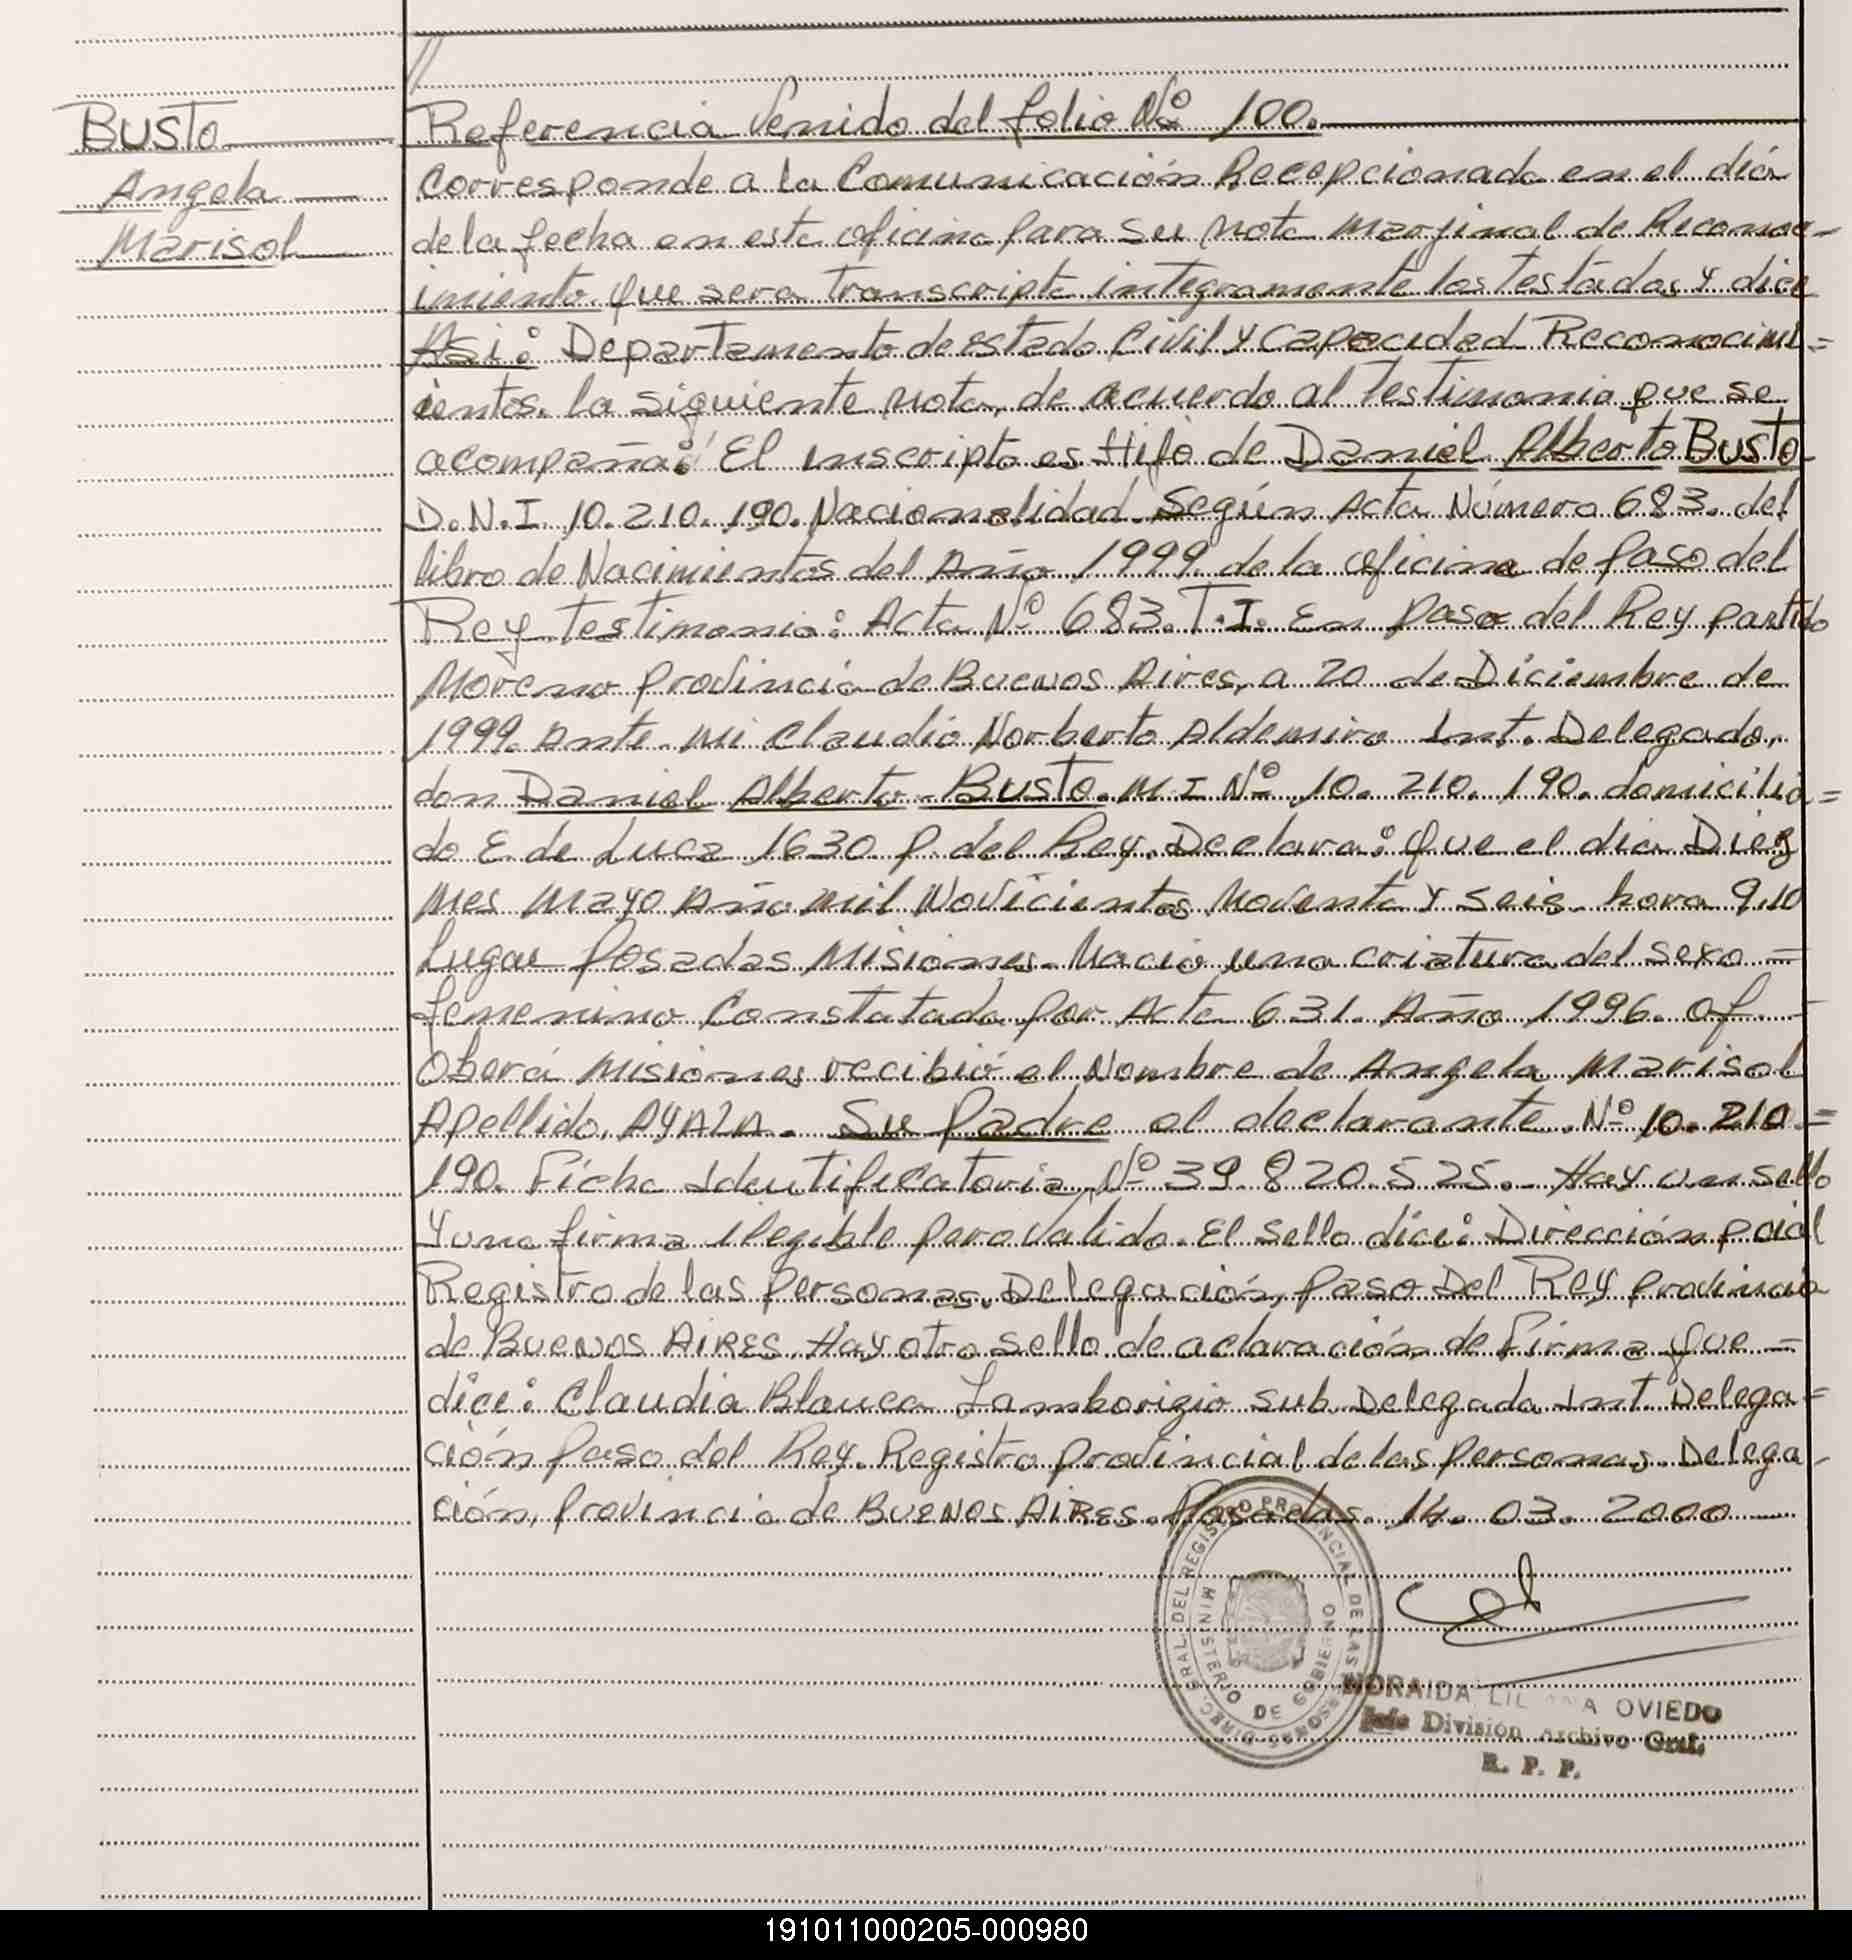 BUSTO
Angela
Marisol
Referencia Venido del folio Nº 100.
Corresponde a la Comunicación Recepcionada en el día
de la fecha en esta oficina para su nota marjinal de Reconoc-
imiento que sera transcripta integramente las testadas y dice
Asi: Departamento de estado Civil y Capacidad Reconocimi=
ientos. la siguiente nota, de acuerdo al testimonio que se
acompaña: El inscripto es Hijo de Daniel Alberto BUSTO
D.N.I 10.210.190. Nacionalidad Según Acta Número 683. del
libro de Nacimientos del Año 1999. de la oficina de Paso del
Rey testimonio: Acta Nº 683. T.I. En paso del Rey partido
Moreno provincia de Buenos Aires, a 20 de Diciembre de
1999. Ante mi Claudio Norberto Aldemiro Int. Delegado,
don Daniel Alberto BUSTO. M I Nº 10.210.190. domicilia=
do E. de Luca 1630 P. del Rey. Declara: Que el dia Diez
mes mayo Año mil Novicientos Noventa y seis. hora 9,10
Lugar Posadas Misiones. Nacio una criatura del sexo =
femenino Constatada por Acta 631. Año 1996. of. -
Oberá Misiones recibió el Nombre de Angela Marisol
Apellido, AYALA. Su Padre el declarante. Nº 10.210=
190. Ficha Identificatoria Nº 39.820.525.- Hay un sello
Y una firma ilegible pero Valida. El sello dice: Dirección pcial
Registro de las personas. Delegación, Paso Del Rey provincia
de BUENOS AIRES. Hay otro sello de aclaración de Firma que =
dice: Claudia Blanca Lamborizio Sub Delegada Int. Delega=
ción Paso del Rey. Registro provincial de las personas. Delega-
ción, Provincia de BUENOS AIRES. Posadas. 14. 03. 2000
DIREC. GRAL. DEL REGISTRO PROVINCIAL DE LAS PERSONAS
MINISTERIO DE GOBIERNO
OVIEDO
Jefe División Archivo Gral.
R. P. P.
191011000205-000980